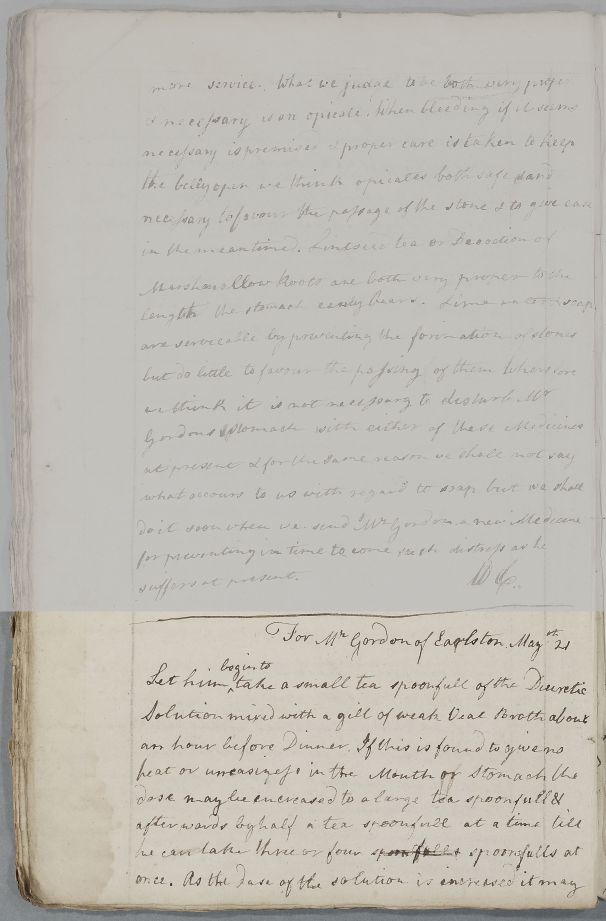 more service. What we judge to be both very proper
& necessary is an opiate. When bleeding if it seems
necessary is premised & proper care is taken to keep
the belly open we think opiates both safe and
necessary to favour the passage of the stone & to give ease
in the mean time. Linseed tea or Decoction of
Marshmallow Roots are both very proper to the
length the stomach easily bears. Lime water & soap
are serviceable by preventing the formation of stones
but do little to favour the passing of them Wherefore
we think it is not necessary to disturb Mr
Gordons stomach with either of these Medicines
at present & for the same reason we shall not say
what occurs to us with regard to soap but we shall
do it soon when we send Mr Gordon a new Medicine
for preventing in time to come such distress as he
suffers at present.
For Mr Gordon of Earlston May 21st
begin to
Let him ‸ take a small tea spoonfull of the Diuretic
Solution mixed with a gill of weak Veal Broth about
an hour before Dinner. If this is found to give no
heat or uneasiness in the Mouth or Stomach the
dose may be encreased to a large tea spoonfull &
afterwards by half a tea spoonfull at a time till
he can take three or four spoonfulls spoonfulls at
once. As the dose of the solution is encreased it may